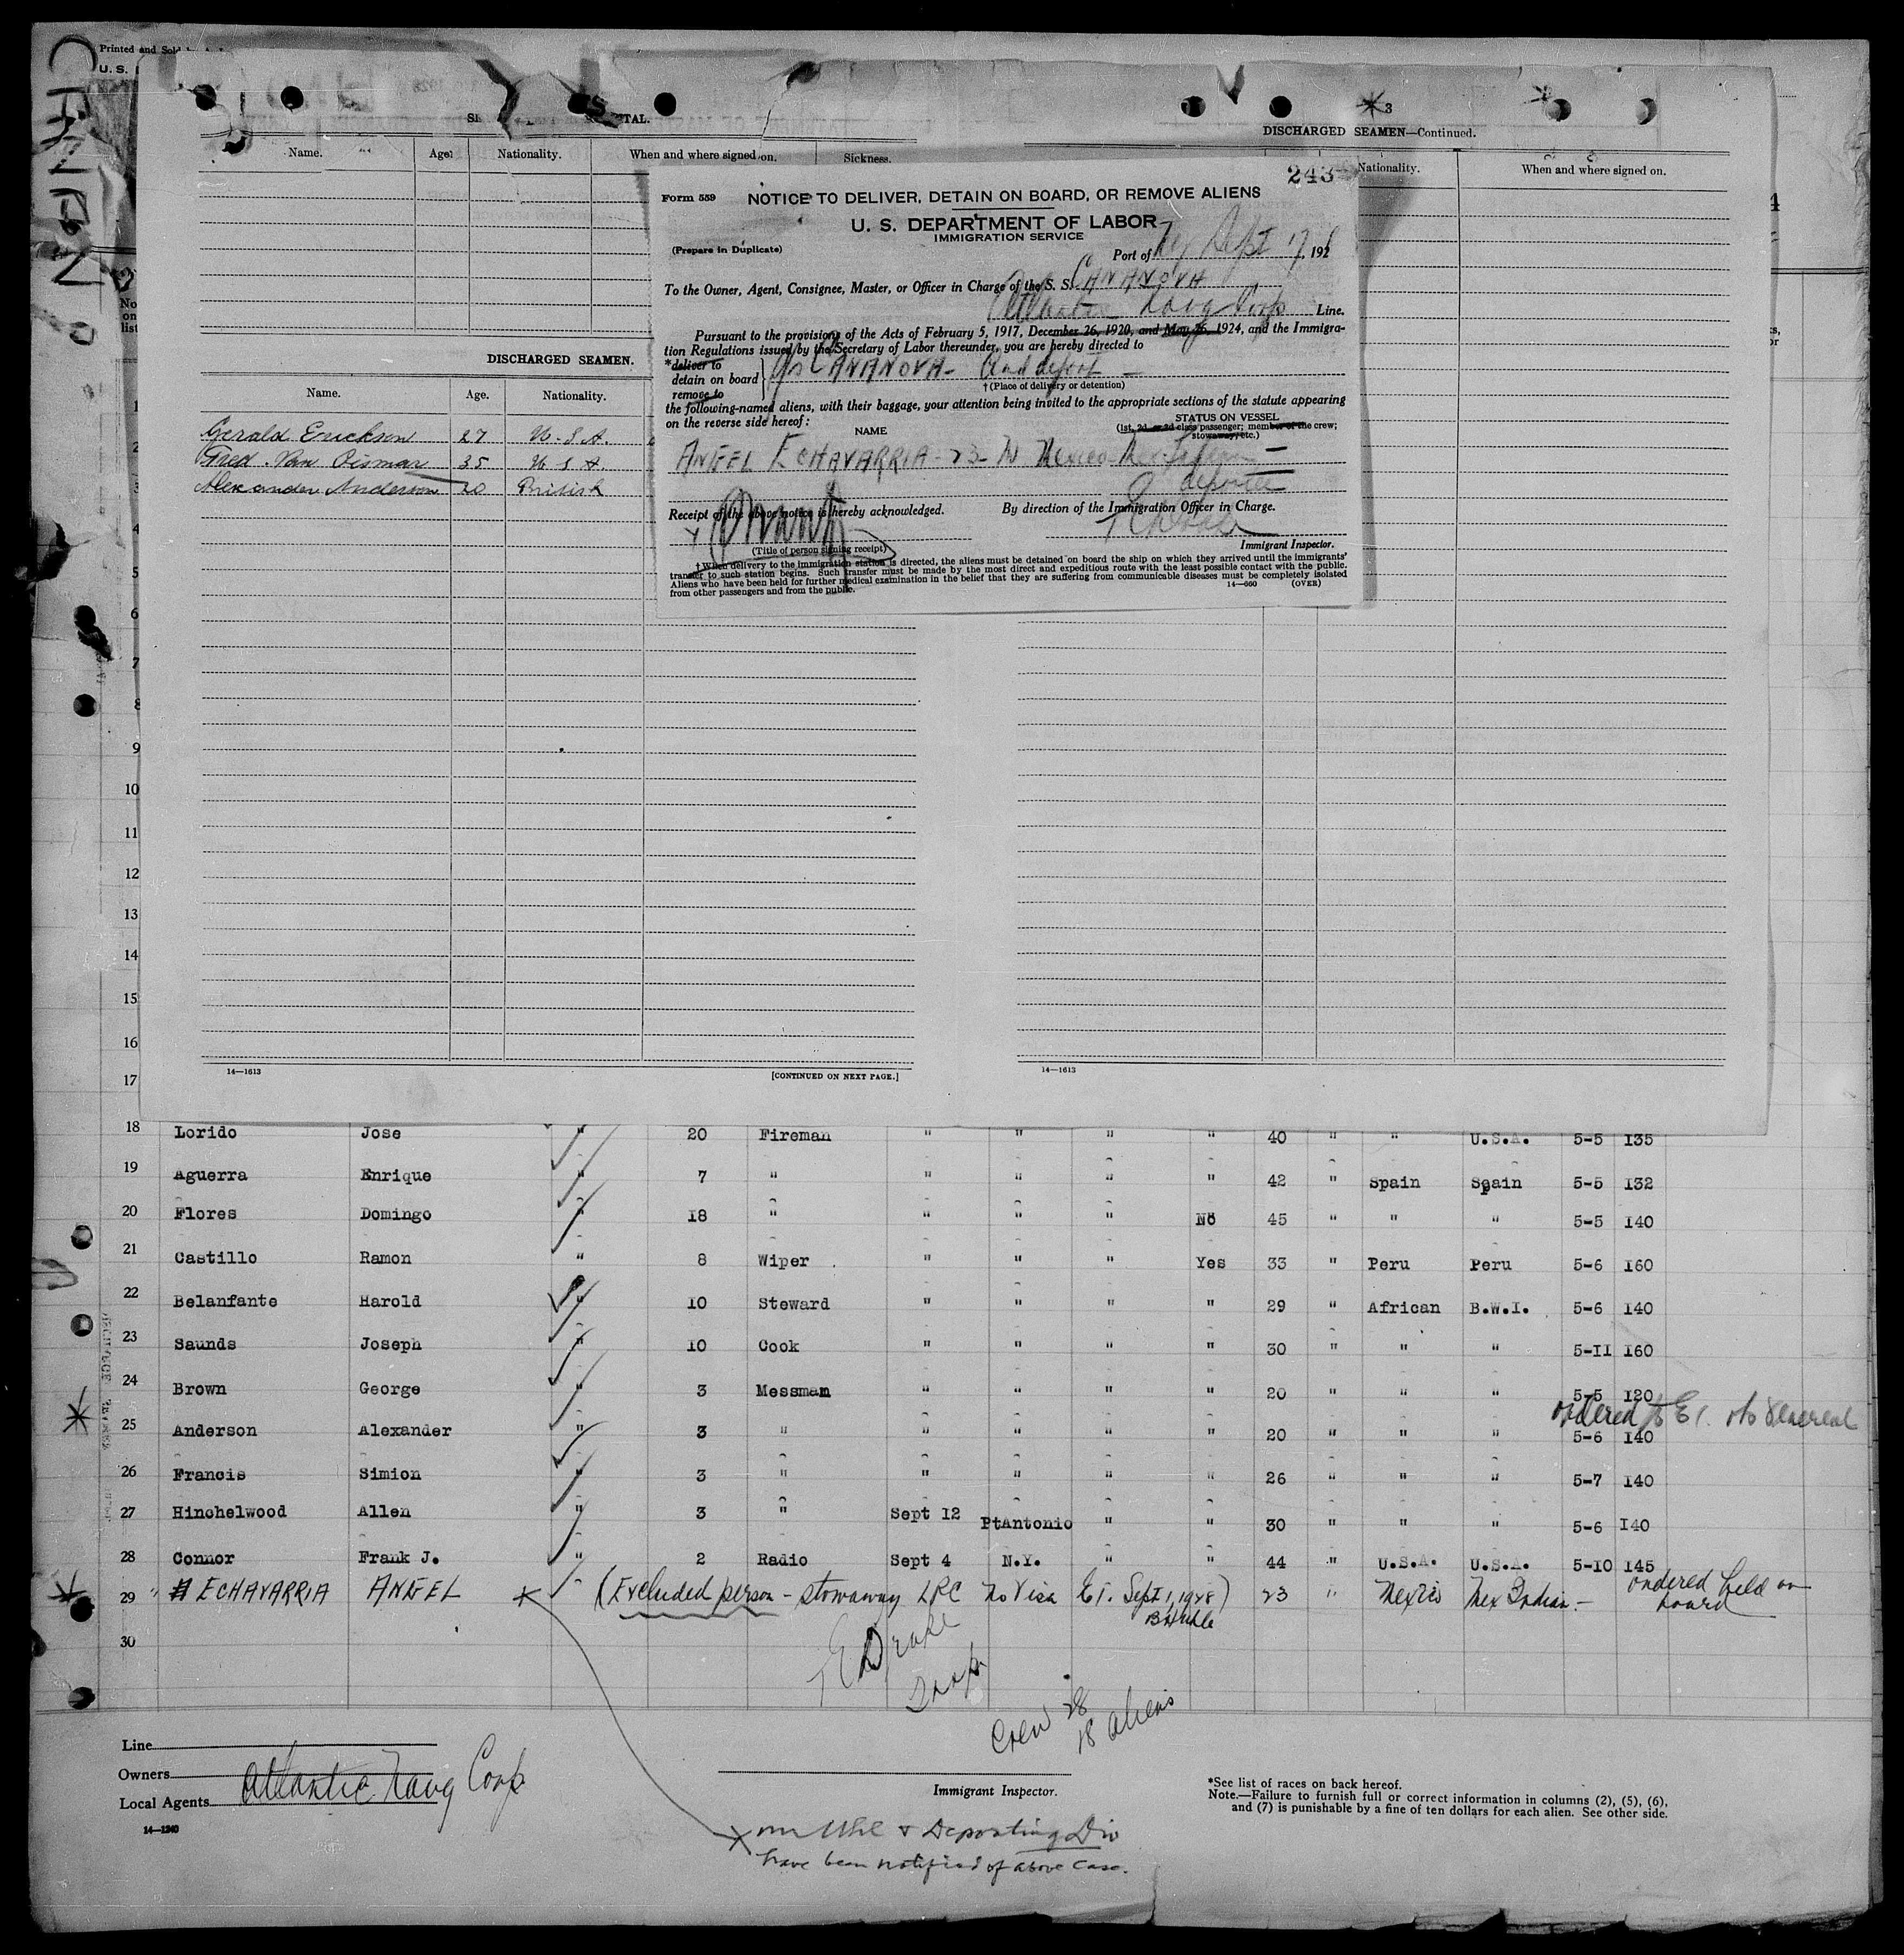 Printed and Sold
U. S.
3
DISCHARGED SEAMEN—Continued.
Name. Age. Nationality. When and where signed on. Sickness.
Nationality. When and where signed on.
243
Form 559 NOTICE TO DELIVER, DETAIN ON BOARD, OR REMOVE ALIENS
U. S. DEPARTMENT OF LABOR
IMMIGRATION SERVICE
(Prepare in Duplicate)
Port of NY Sept 17, 1928
To the Owner, Agent, Consignee, Master, or Officer in Charge of the S. S. CANANOVA
Atlantic Navg Corp Line.
Pursuant to the provisions of the Acts of February 5, 1917, December 26, 1920, and May 26, 1924, and the Immigra-
tion Regulations issued by the Secretary of Labor thereunder, you are hereby directed to
*deliver to
detain on board
remove to
CANANOVA - and deport -
†(Place of delivery or detention)
the following-named aliens, with their baggage, your attention being invited to the appropriate sections of the statute appearing
on the reverse side hereof:
NAME
STATUS ON VESSEL
(1st, 2d, or 3d class passenger; member of the crew;
stowaway, etc.)
ANGEL ECHAVARRIA - 23 - M Mexico
deportee
Receipt of the above notice is hereby acknowledged. By direction of the Immigration Officer in Charge.
(Title of person signing receipt)
Immigrant Inspector.
†When delivery to the immigration station is directed, the aliens must be detained on board the ship on which they arrived until the immigrants'
transfer to such station begins. Such transfer must be made by the most direct and expeditious route with the least possible contact with the public.
Aliens who have been held for further medical examination in the belief that they are suffering from communicable diseases must be completely isolated
from other passengers and from the public.
14—660 (OVER)
DISCHARGED SEAMEN.
Name. Age. Nationality.
Gerald Erickson 27 U.S.A.
Fred Van Dismar 35 U S A.
Alexander Anderson 20 British
14—1613 [CONTINUED ON NEXT PAGE.]
14—1613
1
2
3
4
5
6
7
8
9
10
11
12
13
14
15
16
17
18 Lorido Jose " 20 Fireman " " " " 40 " " U.S.A. 5-5 135
19 Aguerra Enrique " 7 " " " " " 42 " Spain Spain 5-5 132
20 Flores Domingo " 18 " " " " No 45 " " " 5-5 140
21 Castillo Ramon " 8 Wiper " " " Yes 33 " Peru Peru 5-6 160
22 Belanfante Harold " 10 Steward " " " " 29 " African B.W.I. 5-6 140
23 Saunds Joseph " 10 Cook " " " " 30 " " " 5-11 160
24 Brown George " 3 Messman " " " " 20 " " " 5-5 120
ordered to E I.
25 Anderson Alexander " 3 " " " " " 20 " " " 5-6 140
26 Francis Simion " 3 " " " " " 26 " " " 5-7 140
27 Hinchelwood Allen " 3 " Sept 12 PtAntonio " " 30 " " " 5-6 140
28 Connor Frank J. " 2 Radio Sept 4 N.Y. " " 44 " U.S.A. U.S.A. 5-10 145
29 ECHAVARRIA ANGEL (Excluded person - stowaway LPC No Visa E I. Sept 1, 1928) 23 " Mexico Mex Indian. - ordered held on board
30
T E Drake
Insp
Crew 28
18 aliens
Line
Owners
Local Agents
Atlantic Navg Corp
14—1240
Immigrant Inspector.
*See list of races on back hereof.
Note.—Failure to furnish full or correct information in columns (2), (5), (6),
and (7) is punishable by a fine of ten dollars for each alien. See other side.
Mr Uhl & Deporting Div
have been notified of above case.